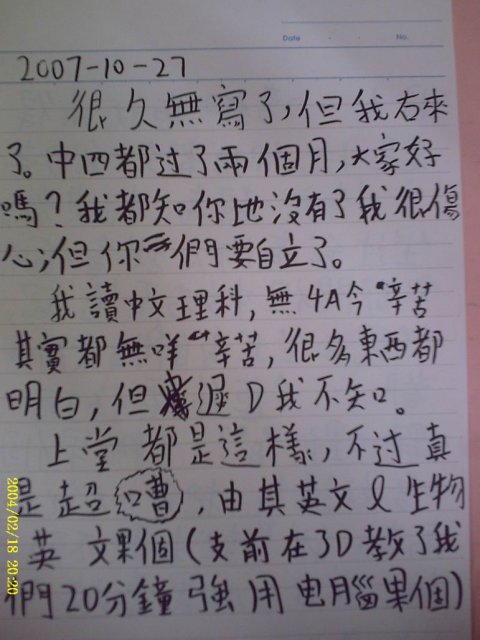 Date . . No.
2007-10-27
很久無寫了,但我右來
了。中四都过了兩個月,大家好
嗎?我都知你地沒有了我很傷
心;但你們要自立了。
我讀中文理科,無4A今"辛苦
其實都無咩"辛苦,很多東西都
明白,但遲D我不知。
上堂都是這樣,不过真
是超嘈,由其英文&生物
英文果個(支前在3D教了我
們20分鐘強用电腦果個)
2004/02/18 20:20